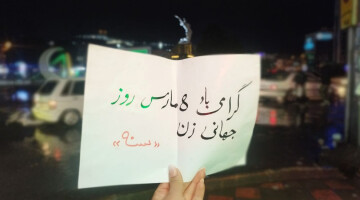 گرامی باد ۸ مارس روز
جهانی زن
"سنه"